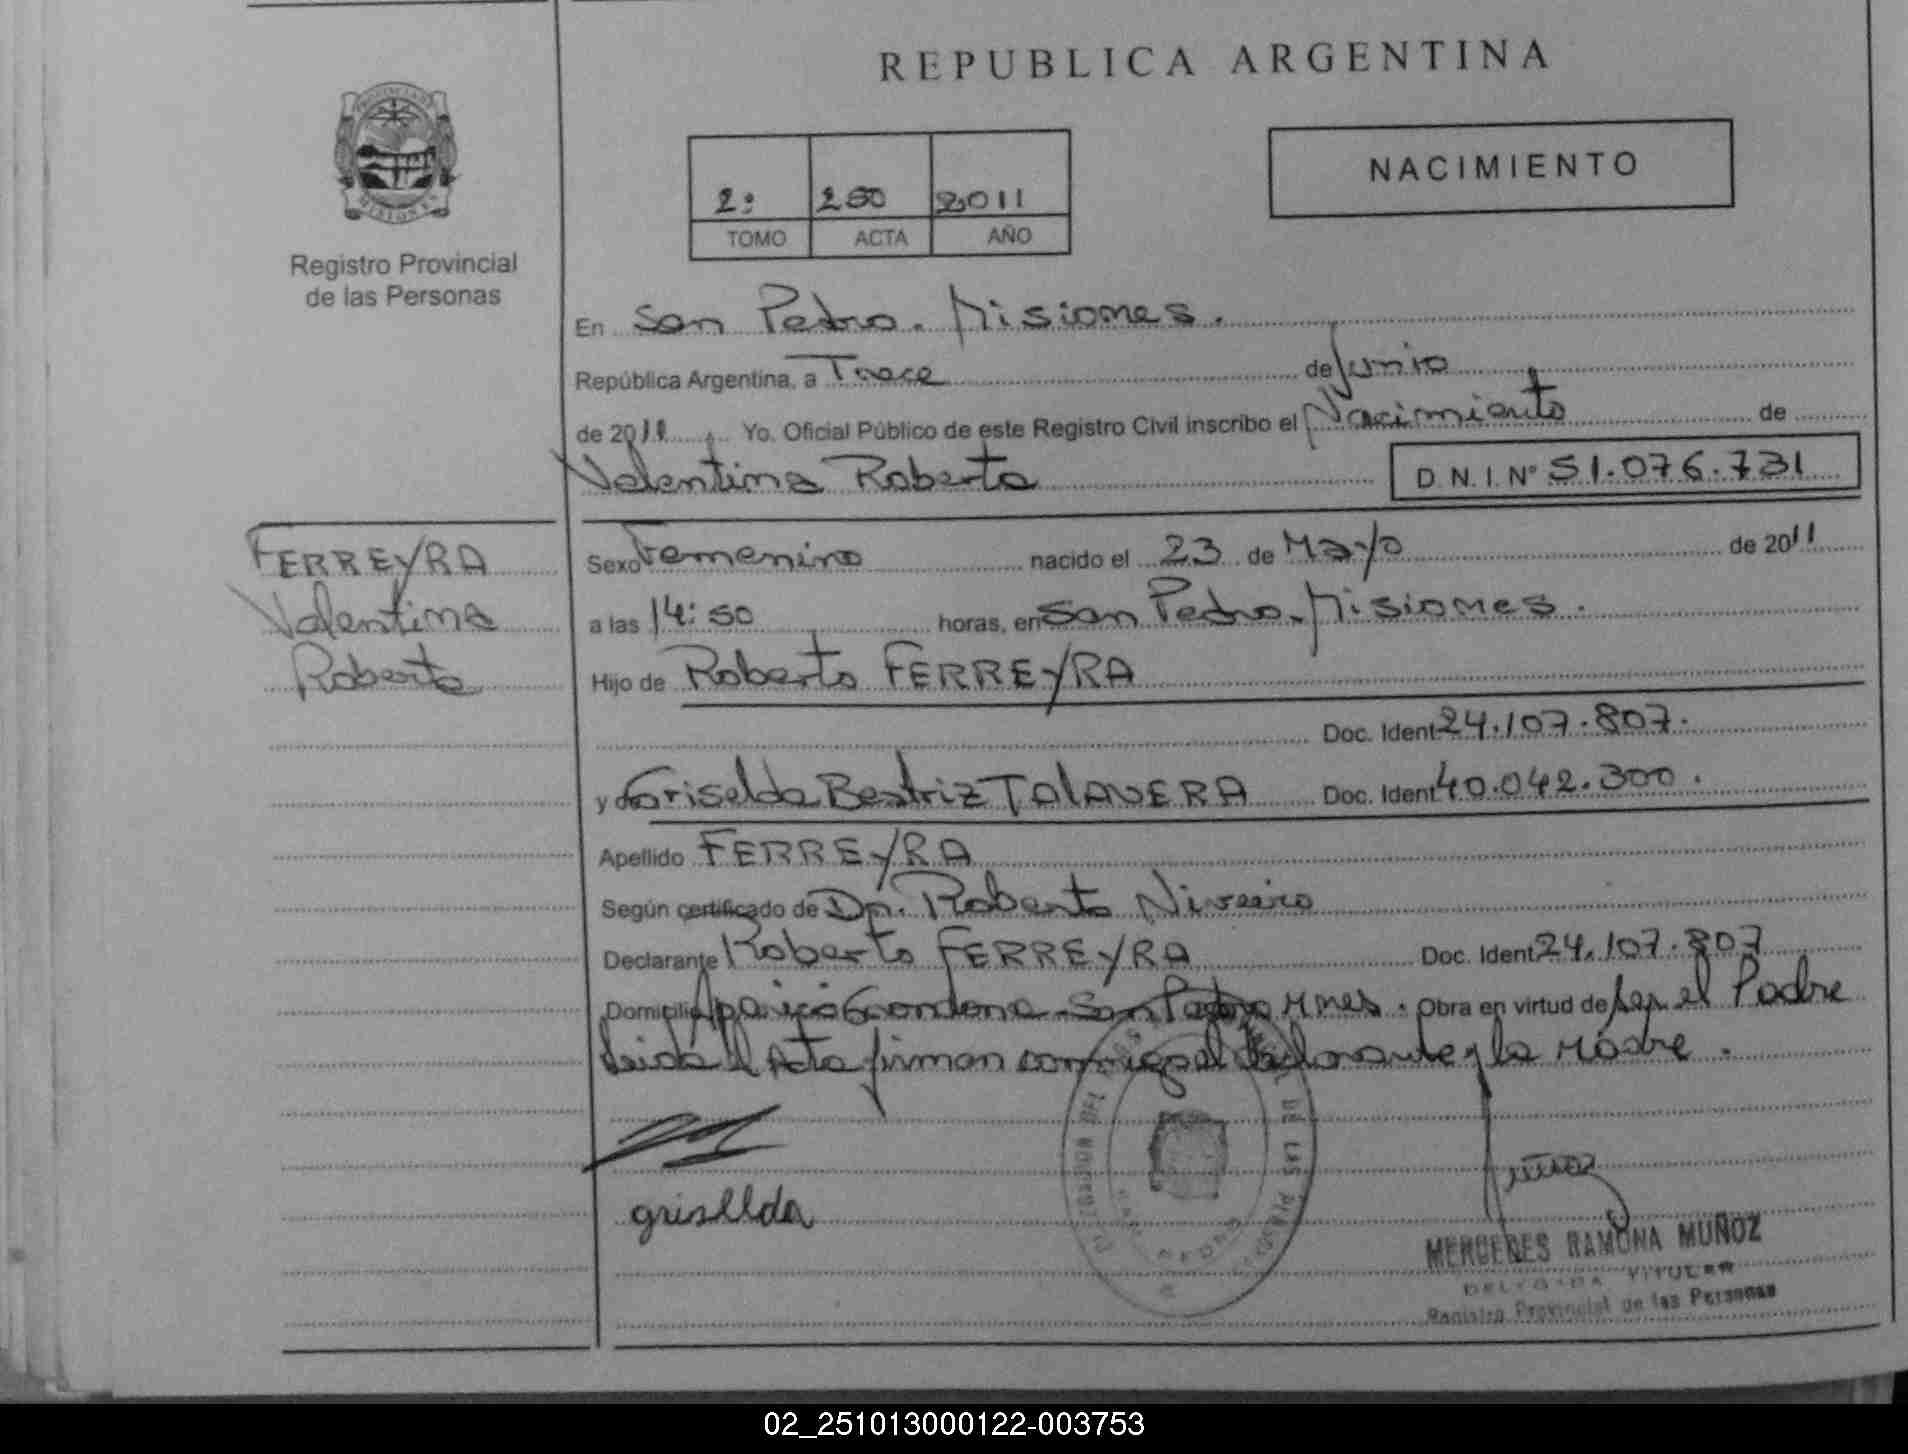 REPUBLICA ARGENTINA
PROVINCIA DE
MISIONES
Registro Provincial
de las Personas
2: 250 2011
TOMO ACTA AÑO
NACIMIENTO
En San Pedro. Misiones.
República Argentina, a Trece de Junio
de 2011 Yo. Oficial Público de este Registro Civil inscribo el Nacimiento de
Valentina Roberta D.N.I. Nº 51.076.731
FERREYRA
Valentina
Roberta
Sexo Femenino nacido el 23 de Mayo de 2011
a las 14:50 horas, en San Pedro. Misiones.
Hijo de Roberto FERREYRA
Doc. Ident 24.107.807.
y de Griselda Beatriz TALAVERA Doc. Ident 40.042.300.
Apellido FERREYRA
Según certificado de Dr. Roberto Niveiro
Declarante Roberto FERREYRA Doc. Ident 24.107.807
Domicilio San Pedro Mnes. Obra en virtud de ser el Padre
Leida el Acta firman conmigo el declarante y la Madre.
grisllda
DE LAS PERSONAS
SAN PEDRO
MERCEDES RAMONA MUÑOZ
DELEGADA TITULAR
Registro Provincial de las Personas
02_251013000122-003753